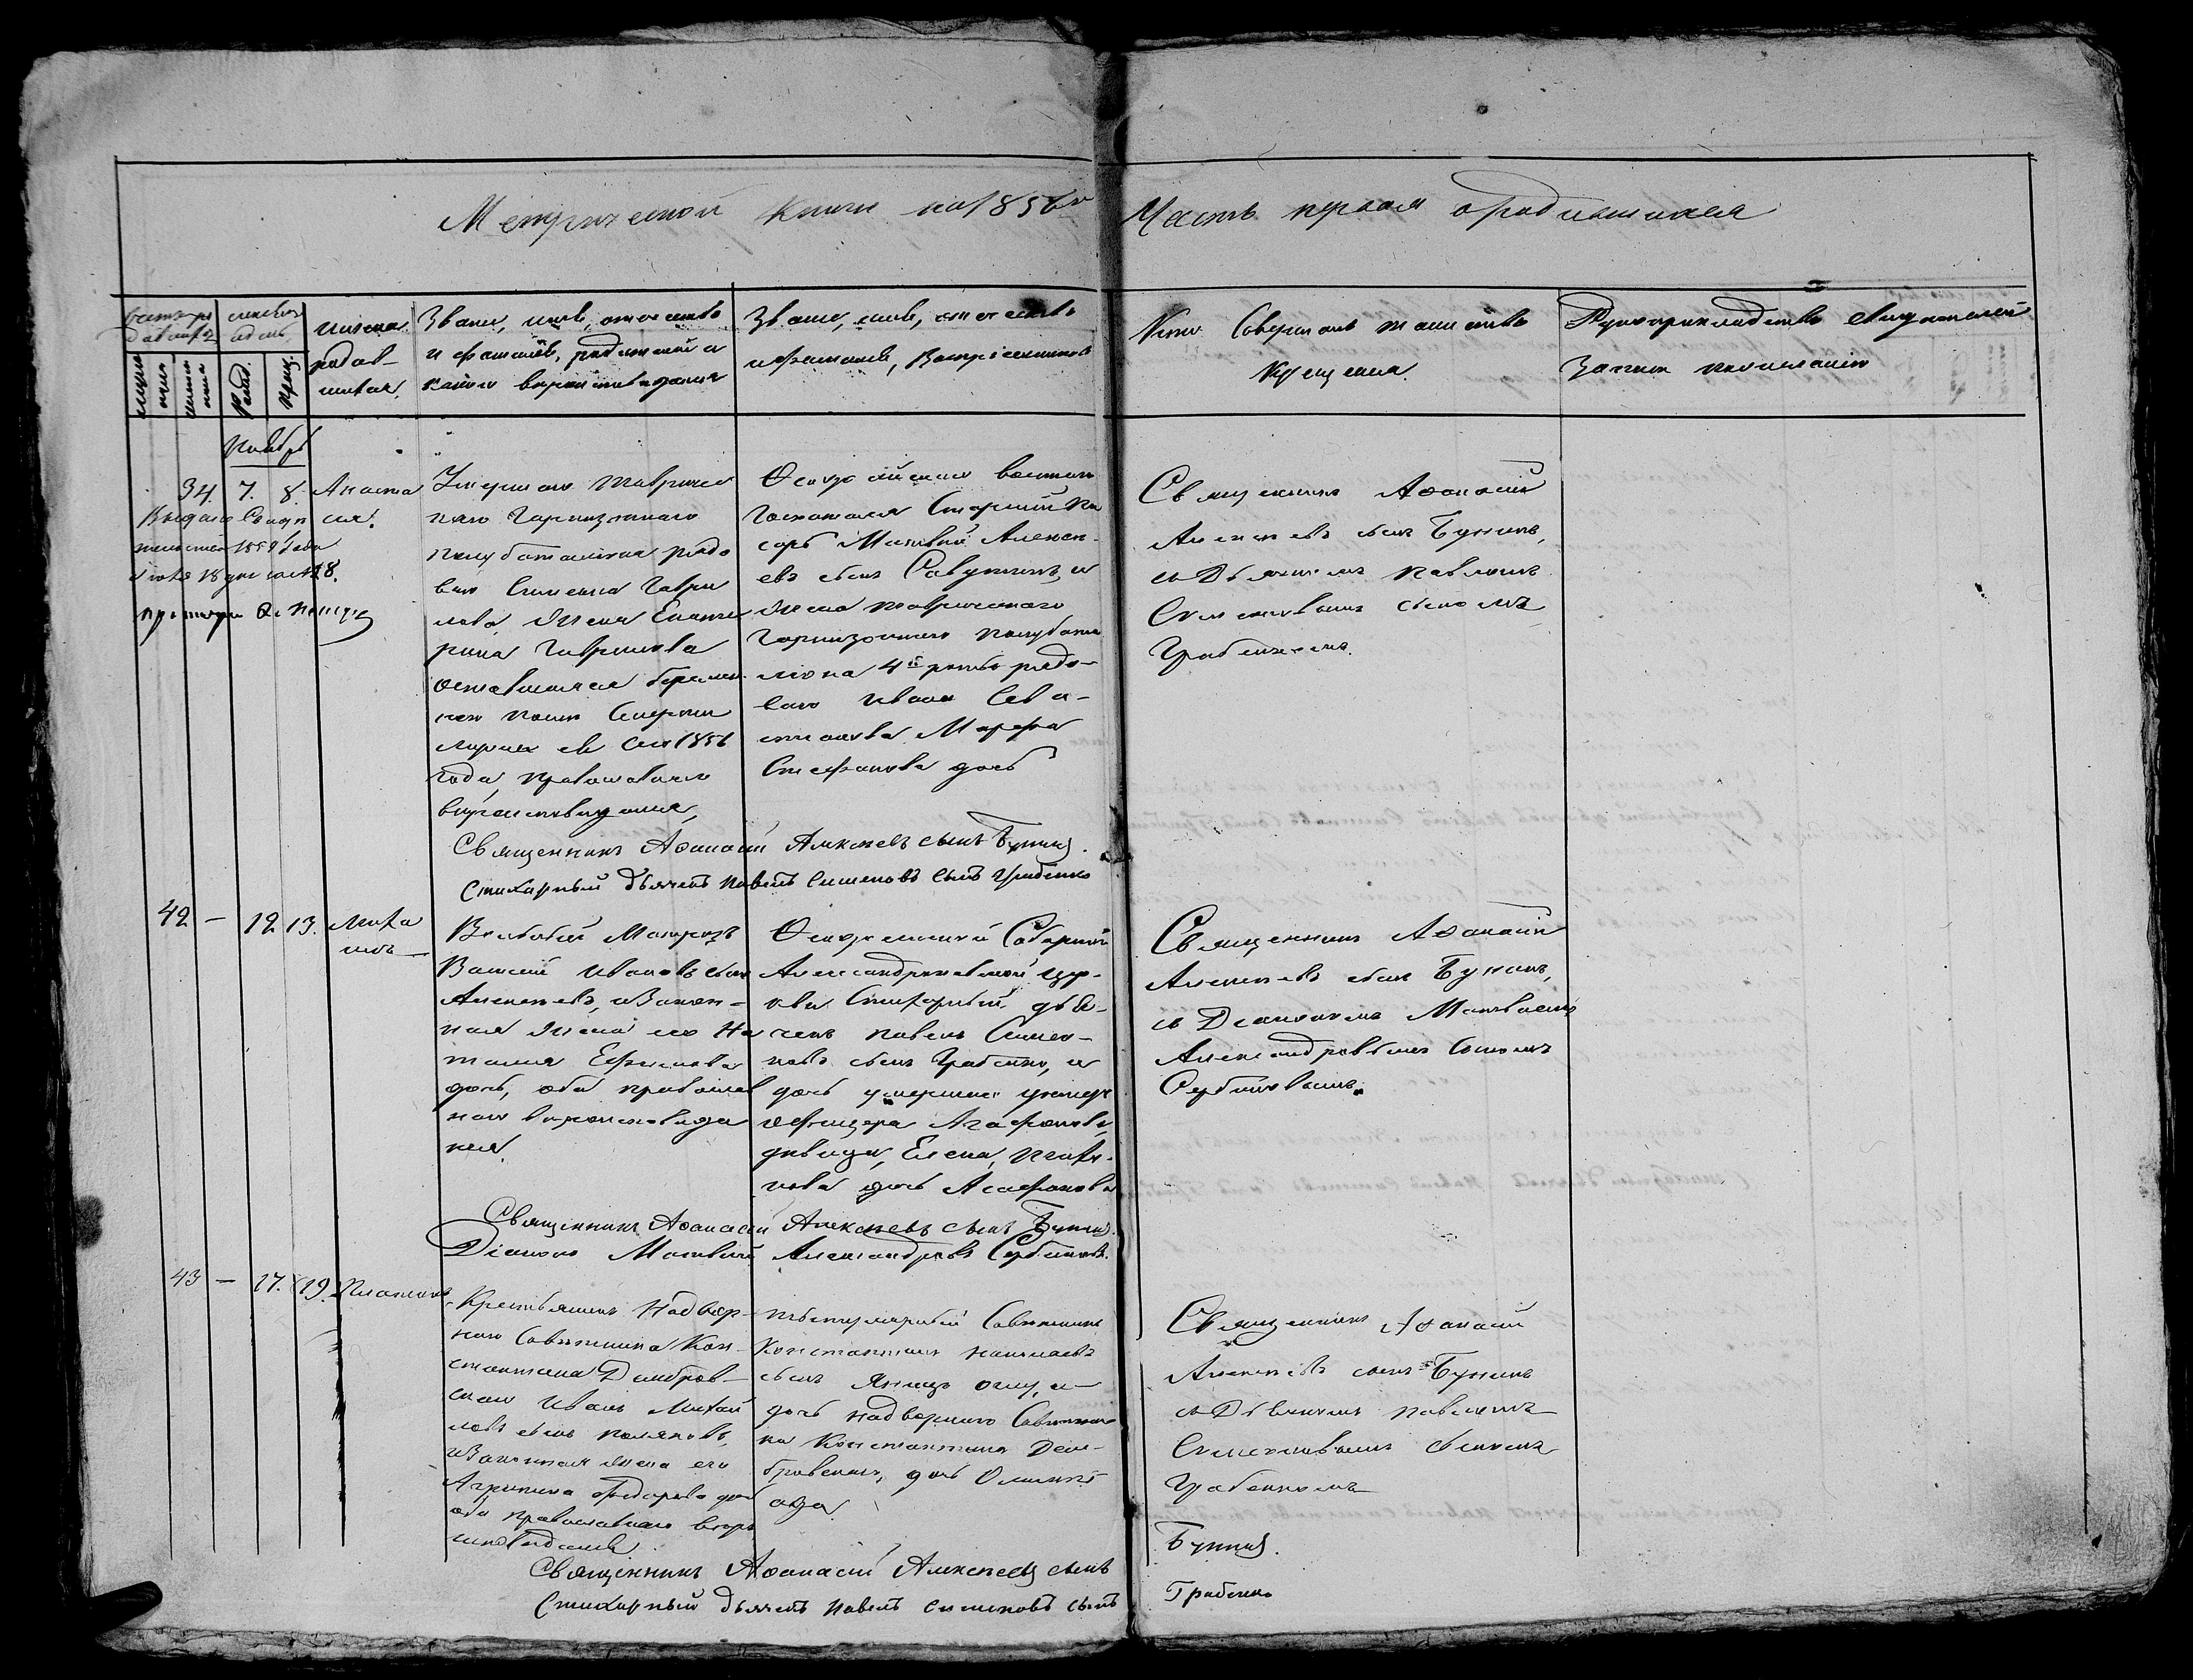 Метрической книги на 1856й
Часть первая о родившихся
имена
родив-
шихся.
Званіе, имя, отчество
и фамилія, родителей и
какого вероисповеданія
Званіе, имя, отчество
и фамилія, Воспріемниковъ
Кто Совершалъ таинство
Крещенія.
Рукоприкладство свидетелей
записи по желанію
Ноябрь
34. 7. 8. Анаста
сія.
Умершаго Тавричес
каго Гарнизоннаго
полубаталіона рядо
ваго Симеона Гаври
лова жена Екате
рина Гаврилова
оставшаяся беремен
ною после смерти
мужа въ 1856
года, Православнаго
вероисповеданія,
Феодосійскаго военнаго
Госпиталя Старшій Пи
сарь Матвей Алексе-
евъ сынъ Савушкинъ, и
жена Таврическаго
Гарнизоннаго полубата
ліона 4й роты рядо-
ваго Ивана Сева-
стіанова Марфа
Стефанова дочь
Священникъ Афанасій
Алексеевъ сынъ Бунинъ,
съ Дьячкомъ Павломъ
Симеоновымъ сыномъ
Грабенкомъ.
Священникъ Афанасій Алексеевъ сынъ Бунинъ.
Стихарный дьячекъ Павелъ Симеоновъ сынъ Грабенко
42 — 12 13. Миха
илъ —
Матрозъ
Василій Ивановъ сынъ
Алексеевъ, и Закон-
ная жена его На
талія Ефимова
дочь, оба православ
наго вероисповеда
нія.
Феодосійской Соборной
Александроневской цер-
кви Стихарный дья-
чекъ Павелъ Симео-
новъ сынъ Грабенко, и
дочь умершаго унтеръ
офицера Агафонова
девица, Елена
дочь Агафонова
Священникъ Афанасій
Алексеевъ сынъ Бунинъ,
съ Діакономъ Матвеемъ
Александровымъ сыномъ
Сербиновымъ.
Священникъ Афанасій Алексеевъ сынъ Бунинъ.
Діаконъ Матвей Александровъ Сербиновъ.
43 — 17. 19. Платонъ
Крестьянинъ Надвор-
наго Советника Кон-
стантина Дембров-
скаго Иванъ Михай
ловъ сынъ Поляковъ,
и Законная жена его
Агрипина Федорова дочь
оба православнаго веро
исповеданія
Титулярный Советникъ
Константинъ Николаевъ
сынъ и
дочь Надворнаго Советни
ка Константина Дем-
бровскаго, дочь Олимпі
ада
Священникъ Афанасій
Алексеевъ сынъ Бунинъ
съ Дьячкомъ Павломъ
Симеоновымъ сыномъ
Грабенкомъ
Священникъ Афанасій Алексеевъ сынъ Бунинъ.
Стихарный дьячекъ Павелъ Симеоновъ сынъ Грабенко